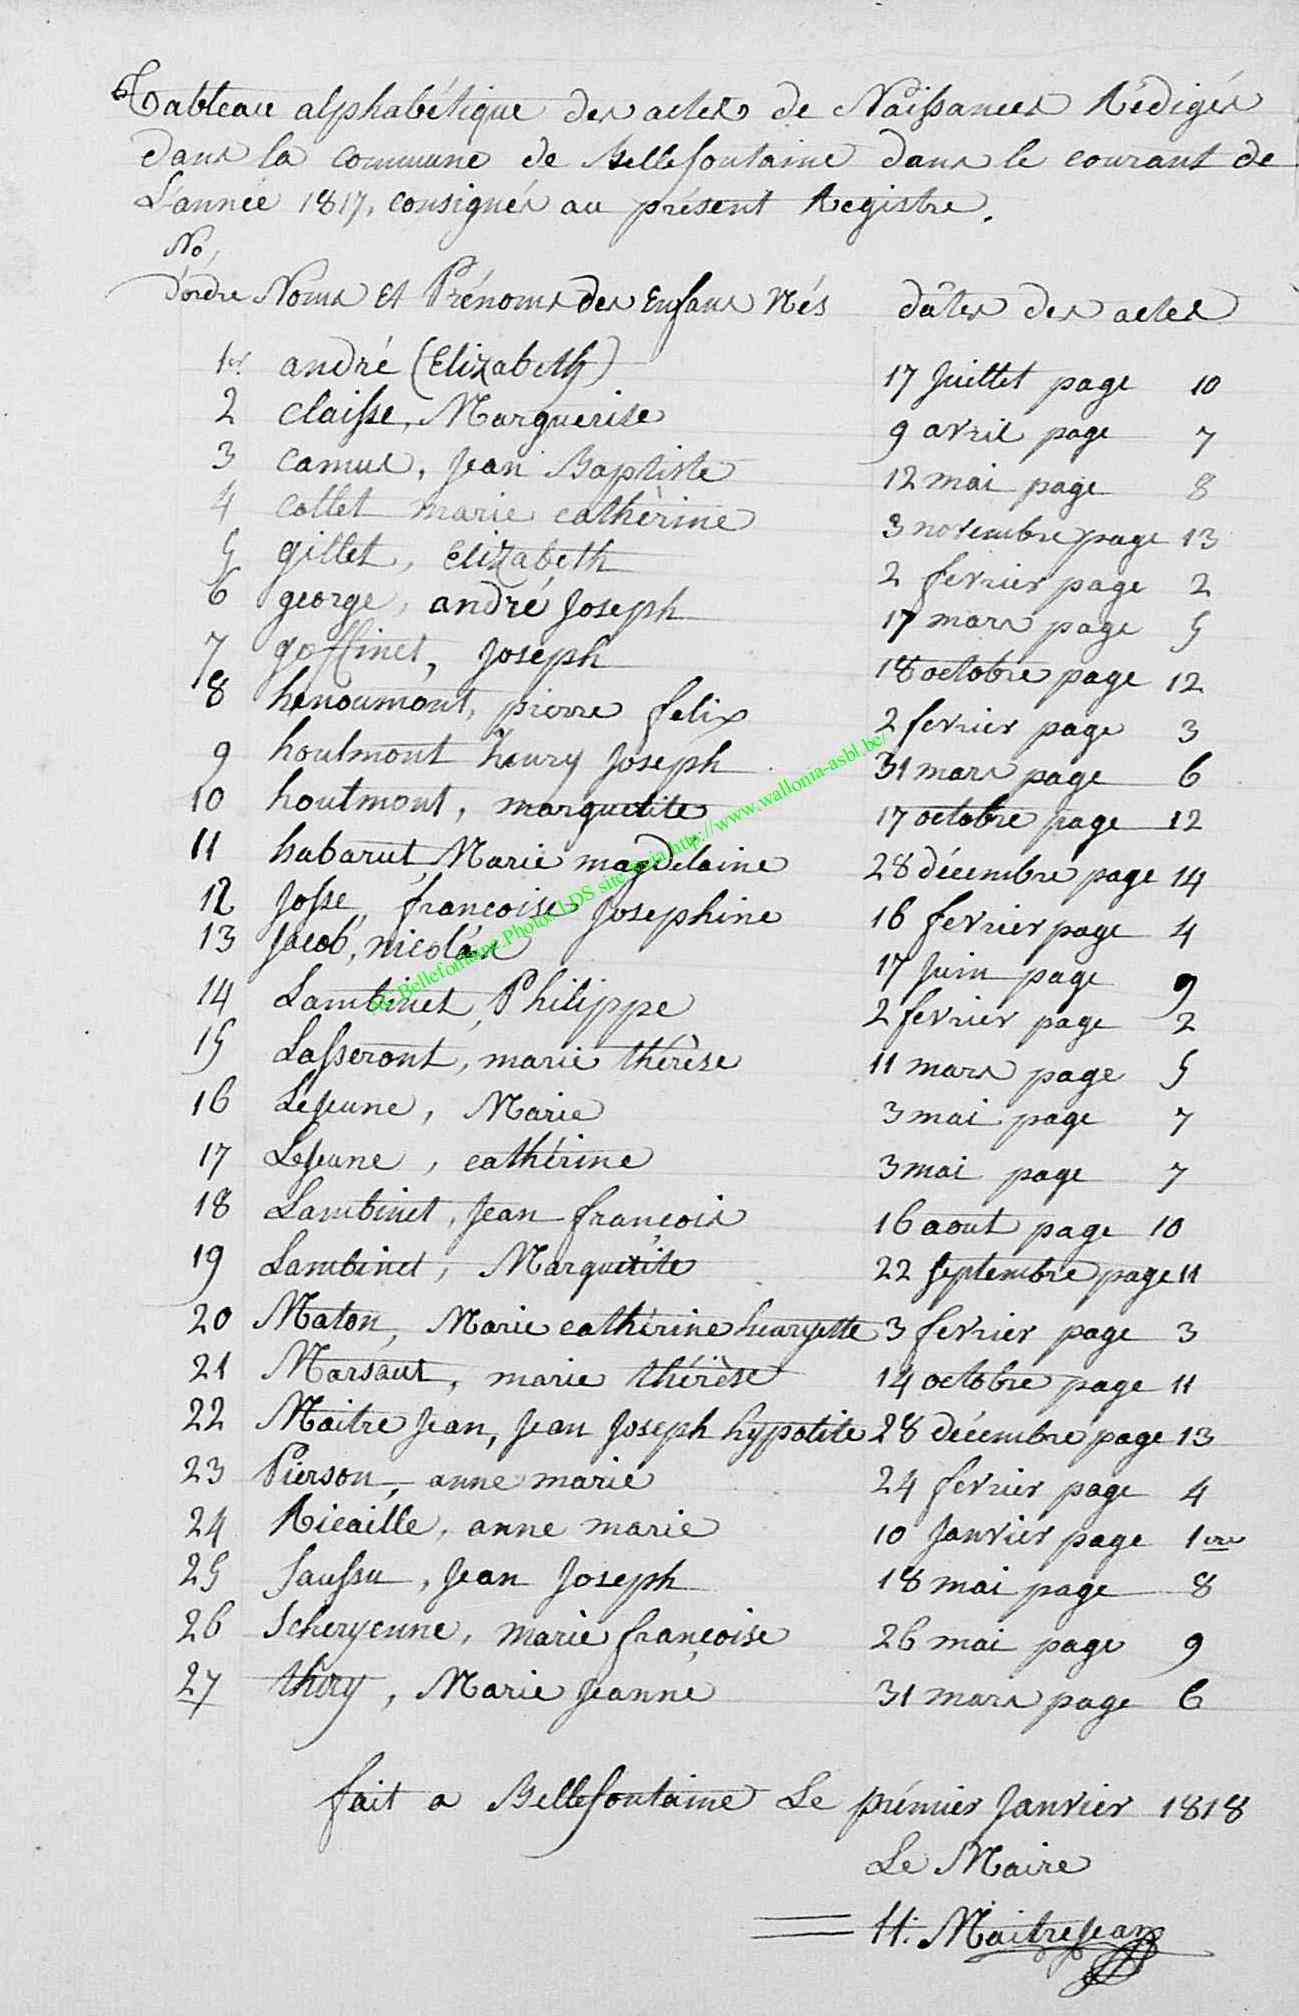 Tableau alphabétique des actes de Naissances Rédigés
dans la commune de Bellefontaine dans le courant de
L'année 1817, consignés au présent Registre.
No
d'ordre Noms et Prénoms des Enfans Nés dâtes des actes
1er andré (Elizabeth) 17 Juillet page 10
2 claisse, Marguerite 9 avril page 7
3 camus, Jean Baptiste 12 mai page 8
4 collet marie cathèrine 3 novembre page 13
5 gillet, Elizabeth 2 fevrier page 2
6 george, andré Joseph 17 mars page 5
7 goffinet, Joseph 18 octobre page 12
8 henoumont, pierre felix 2 fevrier page 3
9 houlmont henry Joseph 31 mars page 6
10 houlmont, marguerite 17 octobre page 12
11 habarut, Marie magdelaine 28 décembre page 14
12 Josse, françoise Josephine 16 fevrier page 4
13 Jacob, nicolas 17 Juin page 9
14 Lambinet, Philippe 2 fevrier page 2
15 Lasseront, marie thérèse 11 mars page 5
16 LeJeune, Marie 3 mai page 7
17 LeJeune, cathérine 3 mai page 7
18 Lambinet, Jean françois 16 aout page 10
19 Lambinet, Marguerite 22 septembre page 11
20 Maton, Marie cathérine henryette 3 fevrier page 3
21 Marsaut, marie thérèse 14 octobre page 11
22 Maitre Jean, Jean Joseph hypolite 28 décembre page 13
23 Pierson, anne marie 24 fevrier page 4
24 Ricaille, anne marie 10 Janvier page 1ere
25 Saussu, Jean Joseph 18 mai page 8
26 Scheryenne, marie françoise 26 mai page 9
27 thiry, Marie Jeanne 31 mars page 6
fait a Bellefontaine Le prémier Janvier 1818
Le Maire
H. MaitreJean
Bellefontaine Photos LDS site http://www.wallonia-asbl.be/